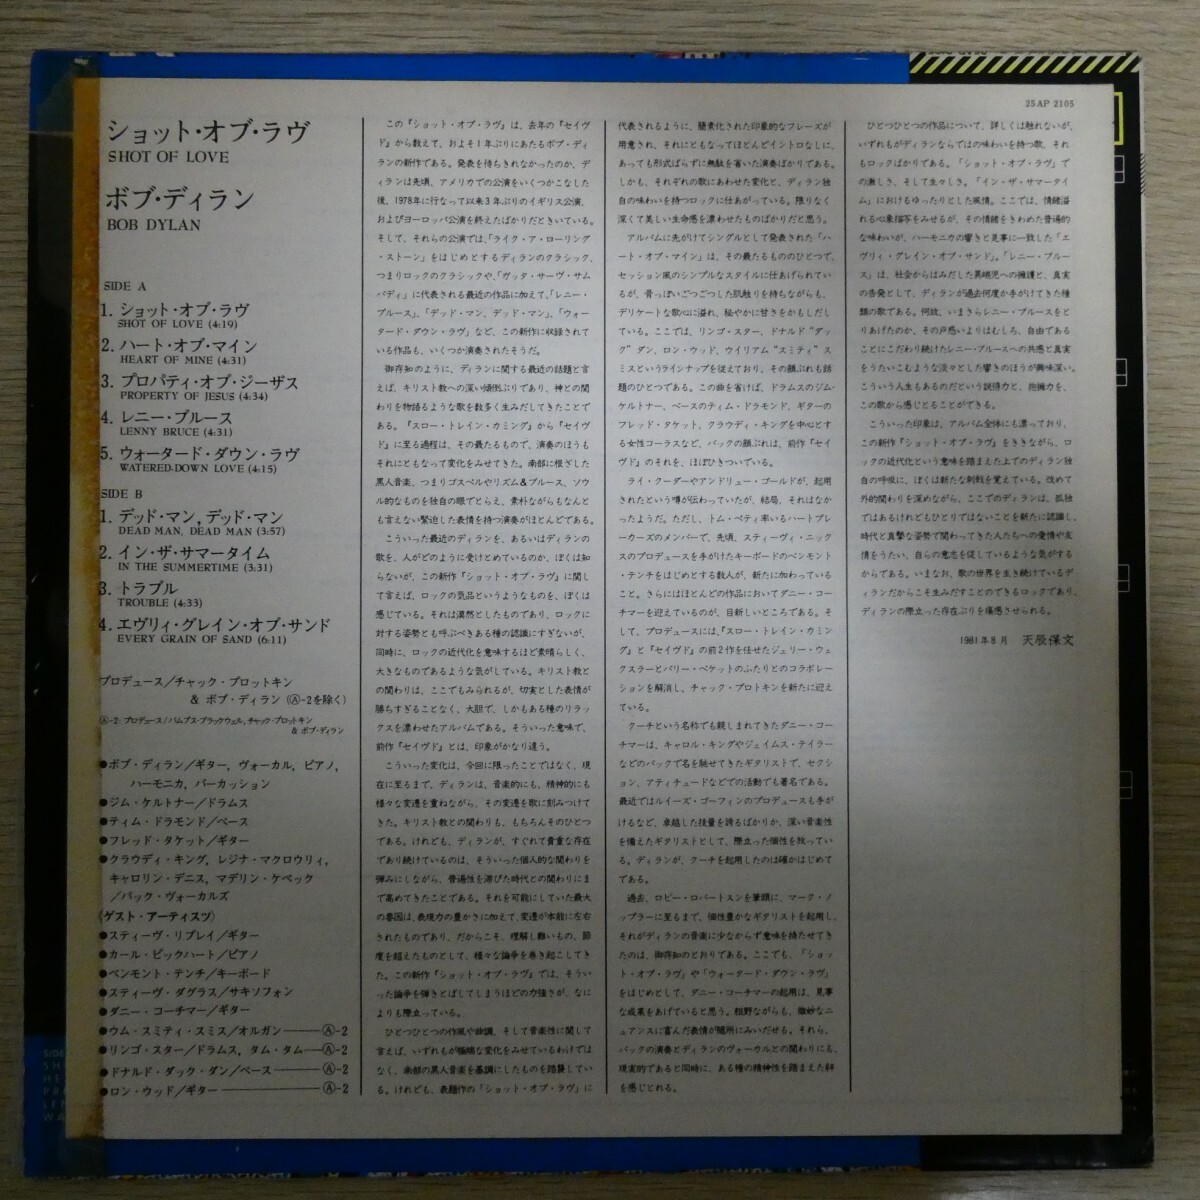 25AP 2105
ショット・オブ・ラヴ
SHOT OF LOVE
ボブ・ディラン
BOB DYLAN
SIDE A
1. ショット・オブ・ラヴ
SHOT OF LOVE (4:19)
2. ハート・オブ・マイン
HEART OF MINE (4:31)
3. プロパティ・オブ・ジーザス
PROPERTY OF JESUS (4:34)
4. レニー・ブルース
LENNY BRUCE (4:31)
5. ウォータード・ダウン・ラヴ
WATERED-DOWN LOVE (4:15)
SIDE B
1. デッド・マン, デッド・マン
DEAD MAN, DEAD MAN (3:57)
2. イン・ザ・サマータイム
IN THE SUMMERTIME (3:31)
3. トラブル
TROUBLE (4:33)
4. エヴリィ・グレイン・オブ・サンド
EVERY GRAIN OF SAND (6:11)
プロデュース/チャック・プロットキン
& ボブ・ディラン (Ⓐ-2を除く)
Ⓐ-2: プロデュース/バムプス・ブラックウェル, チャック・プロットキン
& ボブ・ディラン
●ボブ・ディラン/ギター, ヴォーカル, ピアノ,
ハーモニカ, パーカッション
●ジム・ケルトナー/ドラムス
●ティム・ドラモンド/ベース
●フレッド・タケット/ギター
●クラウディ・キング, レジナ・マクロウリィ,
キャロリン・デニス, マデリン・ケベック
/バック・ヴォーカルズ
(ゲスト・アーティスツ)
●スティーヴ・リプレイ/ギター
●カール・ピックハート/ピアノ
●ベンモント・テンチ/キーボード
●スティーヴ・ダグラス/サキソフォン
●ダニー・コーチマー/ギター
●ウム・スミティ・スミス/オルガン――Ⓐ-2
●リンゴ・スター/ドラムス, タム・タム――Ⓐ-2
●ドナルド・ダック・ダン/ベース――Ⓐ-2
●ロン・ウッド/ギター――Ⓐ-2
この『ショット・オブ・ラヴ』は、去年の『セイヴ
ド』から数えて、およそ1年ぶりにあたるボブ・ディ
ランの新作である。発表を待ちきれなかったのか、デ
ィランは先頃、アメリカでの公演をいくつかこなした
後、1978年に行なって以来3年ぶりのイギリス公演、
およびヨーロッパ公演を終えたばかりだときいている。
そして、それらの公演では、「ライク・ア・ローリング
・ストーン」をはじめとするディランのクラシック、
つまりロックのクラシックや、「ガッタ・サーヴ・サム
バディ」に代表される最近の作品に加えて、「レニー・
ブルース」、「デッド・マン、デッド・マン」、「ウォー
タード・ダウン・ラヴ」など、この新作に収録されて
いる作品も、いくつか演奏されたそうだ。
御存知のように、ディランに関する最近の話題と言
えば、キリスト教への深い傾倒ぶりであり、神との関
わりを物語るような歌を数多く生みだしてきたことで
ある。『スロー・トレイン・カミング』から『セイヴド』
に至る過程は、その最たるもので、演奏のほうも
それにともなって変化をみせてきた。南部に根ざした
黒人音楽、つまりゴスペルやリズム&ブルース、ソウ
ル的なものを独自の眼でとらえ、素朴ながらもなんと
も言えない緊迫した表情を持つ演奏がほとんどである。
こういった最近のディランを、あるいはディランの
歌を、人がどのように受けとめているのか、ぼくは知
らないが、この新作『ショット・オブ・ラヴ』に関し
て言えば、ロックの気品というようなものを、ぼくは
感じている。それは漠然としたものであり、ロックに
対する姿勢とも呼ぶべきある種の認識にすぎないが、
同時に、ロックの近代化を意味するほど素晴らしく、
大きなものであるような気がしている。キリスト教と
の関わりは、ここでもみられるが、切実とした表情が
勝ちすぎることなく、大胆で、しかもある種のリラッ
クスを漂わせたアルバムである。そういった意味で、
前作『セイヴド』とは、印象がかなり違う。
こういった変化は、今回に限ったことではなく、現
在に至るまで、ディランは、音楽的にも、精神的にも
様々な変遷を重ねながら、その変遷を歌に刻みつけて
きた。キリスト教との関わりも、もちろんそのひとつ
である。けれども、ディランが、すぐれて貴重な存在
であり続けているのは、そういった個人的な関わりを
弾みにしながら、普遍性を滞びた時代との関わりにま
で高めてきたことである。それを可能にしていた最大
の要因は、表現力の豊かさに加えて、変遷が本能に左右
されたものであり、だからこそ、理解し難いもの、節
度を超えたものとして、様々な論争を巻き起こしてき
た。この新作『ショット・オブ・ラヴ』では、そうい
った論争を弾きとばしてしまうほどの力強さが、なに
よりも際立っている。
ひとつひとつの作風や曲調、そして音楽性に関して
言えば、いずれもが極端な変化をみせているわけでは
なく、南部の黒人音楽を基調にしたものを踏襲してい
る。けれども、表題作の「ショット・オブ・ラヴ」に
代表されるように、簡素化された印象的なフレーズが
用意され、それにともなってほとんどイントロなしに、
あっても形式ばらずに無駄を省いた演奏ばかりである。
しかも、それぞれの歌にあわせた変化と、ディラン独
自の味わいを持つロックに仕あがっている。限りなく
深くて美しい生命感を漂わせたものばかりだと思う。
アルバムに先がけてシングルとして発表された「ハ
ート・オブ・マイン」は、その最たるもののひとつで、
セッション風のシンプルなスタイルに仕あげられてい
るが、骨っぽいごつごつした肌触りを持ちながらも、
デリケートな歌心に溢れ、秘やかに甘さをかもしだし
ている。ここでは、リンゴ・スター、ドナルド“ダッ
ク”ダン、ロン・ウッド、ウイリアム“スミティ”ス
ミスというラインナップを従えており、その顔ぶれも話
題のひとつである。この曲を省けば、ドラムスのジム・
ケルトナー、ベースのティム・ドラモンド、ギターの
フレッド・タケット、クラウディ・キングを中心とす
る女性コーラスなど、バックの顔ぶれは、前作『セイ
ヴド』のそれを、ほぼひきついでいる。
ライ・クーダーやアンドリュー・ゴールドが、起用
されたという噂が伝わっていたが、結局、それはなか
ったようだ。ただし、トム・ペティ率いるハートブレ
ーカーズのメンバーで、先頃、スティーヴィ・ニックス
のプロデュースを手がけたキーボードのベンモント
・テンチをはじめとする数人が、新たに加わっている
こと。さらにはほとんどの作品においてダニー・コー
チマーを迎えているのが、目新しいところである。そ
して、プロデュースには、『スロー・トレイン・カミン
グ』と『セイヴド』の前2作を任せたジェリー・ウェ
クスラーとバリー・ベケットのふたりとのコラボレー
ションを解消し、チャック・プロトキンを新たに迎え
ている。
クーチという名称でも親しまれてきたダニー・コー
チマーは、キャロル・キングやジェイムス・テイラー
などのバックで名を馳せてきたギタリストで、セクシ
ョン、アティチュードなどでの活動でも著名である。
最近ではルイーズ・ゴーフィンのプロデュースも手が
けるなど、卓越した技量を誇るばかりか、深い音楽性
を備えたギタリストとして、際立った個性を放ってい
る。ディランが、クーチを起用したのは確かはじめて
である。
過去、ロビー・ロバートスンを筆頭に、マーク・ノ
ップラーに至るまで、個性豊かなギタリストを起用し、
それがディランの音楽に少なからず意味を持たせてき
たのは、御存知のとおりである。ここでも、「ショッ
ト・オブ・ラヴ」や「ウォータード・ダウン・ラヴ」
をはじめとして、ダニー・コーチマーの起用は、見事
な成果をあげていると思う。粗野ながらも、微妙なニ
ュアンスに富んだ表情が随所にみいだせる。それら、
バックの演奏とディランのヴォーカルとの関わりにも、
現実的であると同時に、ある種の精神性を踏まえた絆
を感じとれる。
ひとつひとつの作品について、詳しくは触れないが、
いずれもがディランならではの味わいを持つ歌、それ
もロックばかりである。「ショット・オブ・ラヴ」で
の激しさ、そして生々しさ。「イン・ザ・サマータイ
ム」におけるゆったりとした風情。ここでは、情緒溢
れる心象描写をみせるが、その情緒をきわめた普遍的
な味わいが、ハーモニカの響きと見事に一致した「エ
ヴリィ・グレイン・オブ・サンド」。「レニー・ブルー
ス」は、社会からはみだした異端児への擁護と、真実
の告発として、ディランが過去何度か手がけてきた種
類の歌である。何故、いまさらレニー・ブルースをと
りあげたのか、その戸惑いよりはむしろ、自由である
ことにこだわり続けたレニー・ブルースへの共感と真実
をうたいこむような淡々とした響きのほうが興味深い。
こういう人生もあるのだという説得力と、抱擁力を、
この歌から感じとることができる。
こういった印象は、アルバム全体にも漂っており、
この新作『ショット・オブ・ラヴ』をききながら、ロ
ックの近代化という意味を踏まえた上でのディラン独
自の呼吸に、ぼくは新たな刺戟を覚えている。改めて
外的関わりを深めながら、ここでのディランは、孤独
ではあるけれどもひとりではないことを新たに認識し、
時代と真摯な姿勢で関わってきた人たちへの愛情や友
情をうたい、自らの意志を促しているような気がする
からである。いまなお、歌の世界を生き続けているデ
ィランだからこそ生みだすことのできるロックであり、
ディランの際立った存在ぶりを痛感させられる。
1981年8月 天辰保文